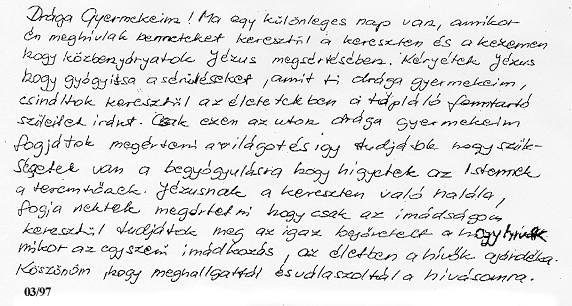 Drága Gyermekeim! Ma egy különleges nap van, amikor
én meghivlak benneteket keresztül a kereszten és a kezemen
hogy közbenyáryatok Jézus megsértésében. Kérjétek Jézus
hogy gyógyitsa a sérüléseket, amit ti drága gyermekeim,
csináltok keresztül az életetekben a tápláló fenntartó
szüleitek iránt. Csak ezen az uton drága gyermekeim
fogjátok megérteni a világot és igy tudjátok hogy szük-
ségetek van a begyógyulásra hogy higyetek az Istennek
a teremtőnek. Jézusnak a kereszten való halála,
fogja nektek megértetni hogy csak az imádságon
keresztül tudjátok meg az igaz bejövetelt a hogy hivők
mikor az egyszerü imádkozás, az életben a hivők ajándéka.
Köszönöm, hogy meghallgattál és válaszoltál a hivásomra.
03/97